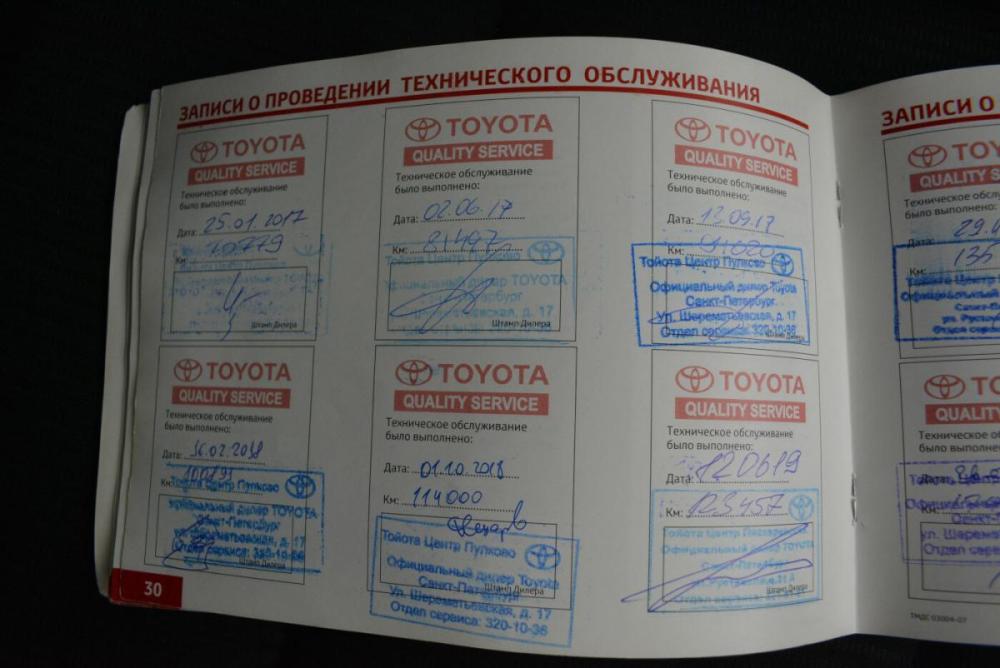 ЗАПИСИ О ПРОВЕДЕНИИ ТЕХНИЧЕСКОГО ОБСЛУЖИВАНИЯ
TOYOTA
QUALITY SERVICE
Техническое обслуживание
было выполнено:
Дата: 25.01.2017
Км:
Штамп Дилера
TOYOTA
QUALITY SERVICE
Техническое обслуживание
было выполнено:
Дата: 02.06.17
Км: 81497
Тойота Центр Пулково
Официальный дилер TOYOTA
Штамп Дилера
TOYOTA
QUALITY SERVICE
Техническое обслуживание
было выполнено:
Дата: 13.09.17
Км:
Тойота Центр Пулково
Официальный дилер Toyota
Санкт-Петербург
Ул. Шереметьевская, д. 17
Отдел сервиса: 320-10-36
Штамп Дилера
TOYOTA
QUALITY SERVICE
Техническое обслуживание
было выполнено:
Дата: 16.02.2018
Км:
Тойота Центр Пулково
Официальный дилер TOYOTA
Санкт-Петербург
ул. Шереметьевская, д. 17
Отдел сервиса: 320-10-36
Штамп Дилера
TOYOTA
QUALITY SERVICE
Техническое обслуживание
было выполнено:
Дата: 01.10.2018
Км: 114000
Тойота Центр Пулково
Официальный дилер Toyota
Санкт-Петербург
Ул. Шереметьевская, д. 17
Отдел сервиса: 320-10-36
Штамп Дилера
TOYOTA
QUALITY SERVICE
Техническое обслуживание
было выполнено:
Дата: 120619
Км: 123457
Тойота Центр Пулково
Официальный дилер TOYOTA
Санкт-Петербург
Штамп Дилера
30
ЗАПИСИ О
TOY
QUALIT
Техническое
было выполнено:
Дата: 29.
Км: 135
Тойота Центр
Официальный
Санкт-
Отдел сервиса
TOY
QUALI
Техническое
было выполнено:
Дата:
Км:
Тойота Центр
Официальный
Санкт-
ул. Шереметьев
Отдел сервиса
ТМДС 03004-07